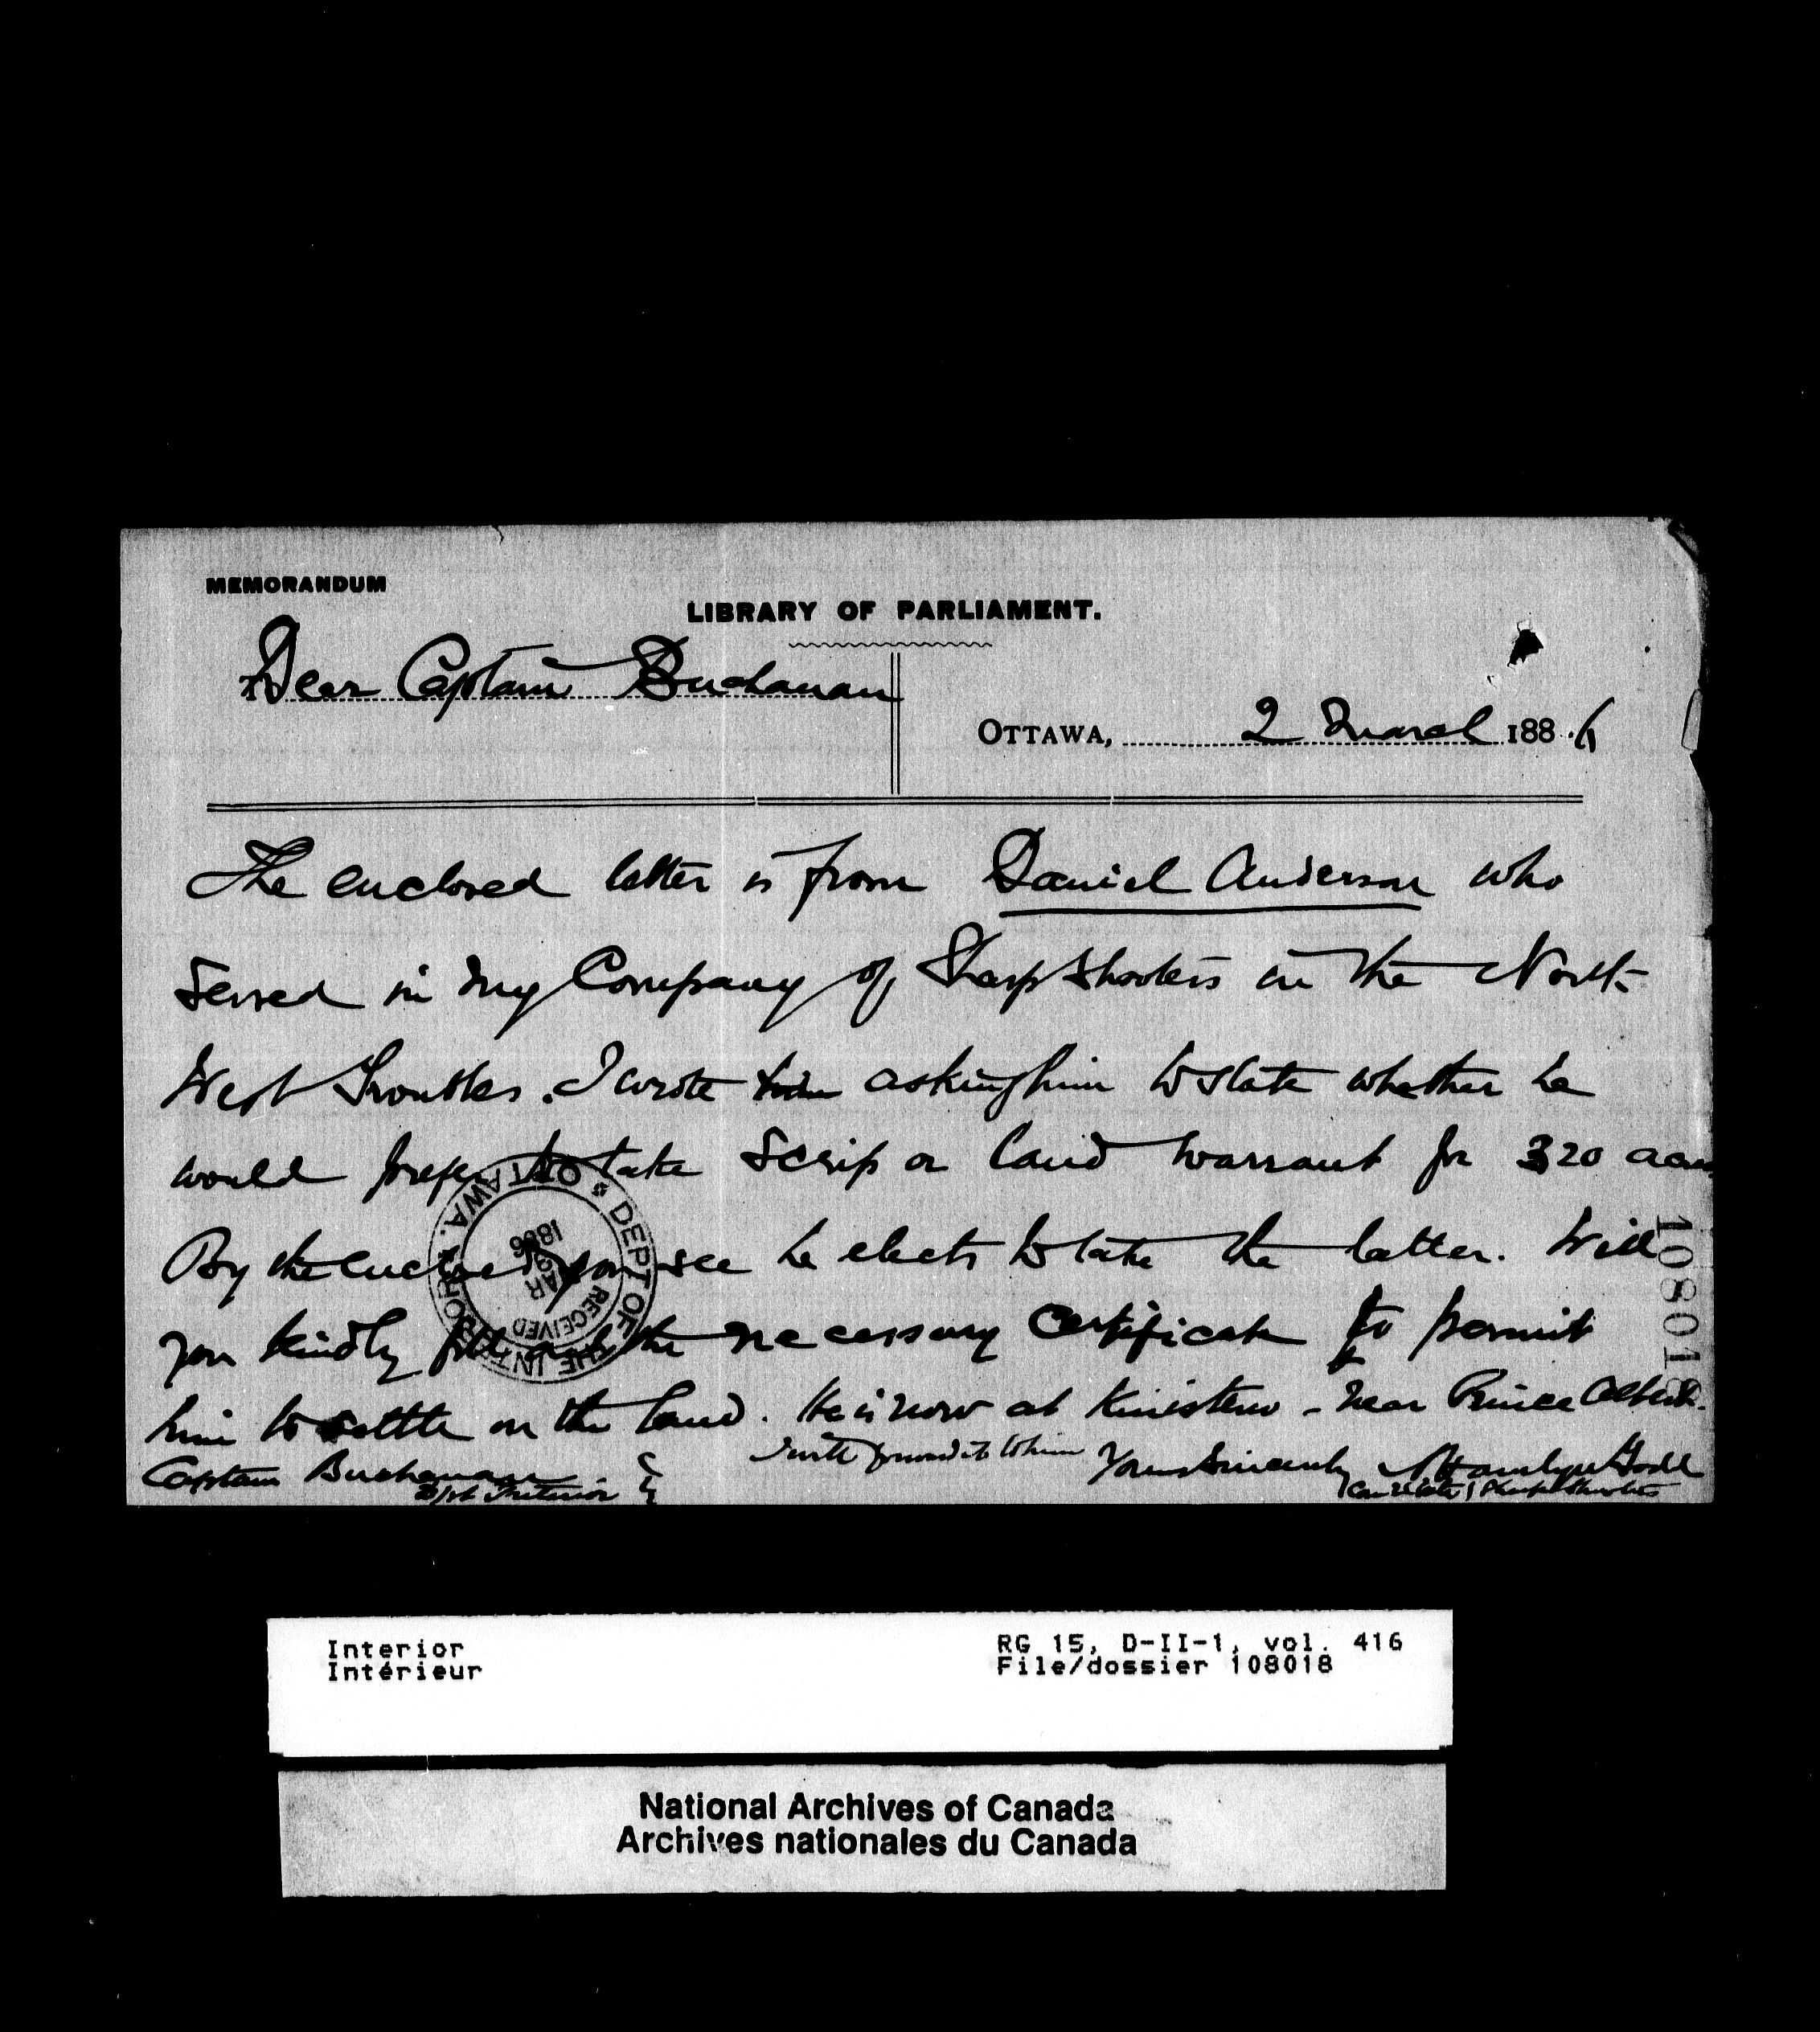 MEMORANDUM
LIBRARY OF PARLIAMENT.
Dear Captain Buchanan
OTTAWA, 2 March 1886
The enclosed letter is from Daniel Anderson who
served in my Company of Sharpshooters in the North
West Troubles. I wrote him asking him to state whether he
would prefer to take Scrip or land warrant for 320 acres
By the enclosed you see he elects to take the latter. Will
you kindly fill out the necessary Certificate to permit
him to settle on the land. He is now at Kinistino - near Prince Albert.
I will forward it to him
Yours Sincerely
A H Todd
Captain Buchanan
Dept Interior
Com Sharpshooters
DEPT OF THE INTERIOR * OTTAWA. *
RECEIVED
MAR
1886
108018
Interior
Intérieur
RG 15, D-II-1, vol. 416
File/dossier 108018
National Archives of Canada
Archives nationales du Canada